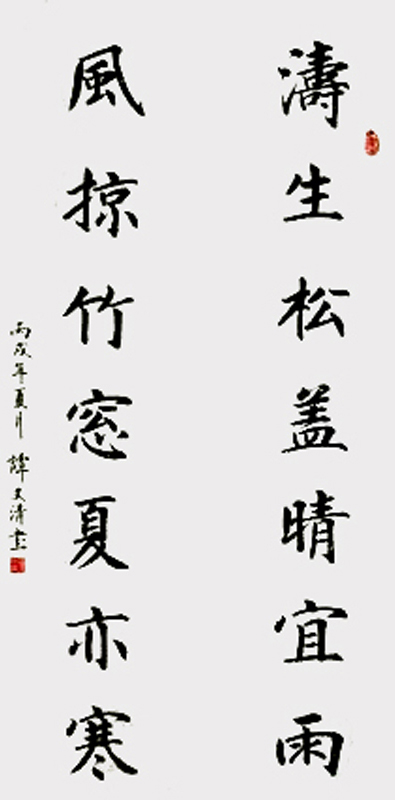 濤生松盖晴宜雨
風掠竹窓夏亦寒
丙戌年夏月 譚文清書